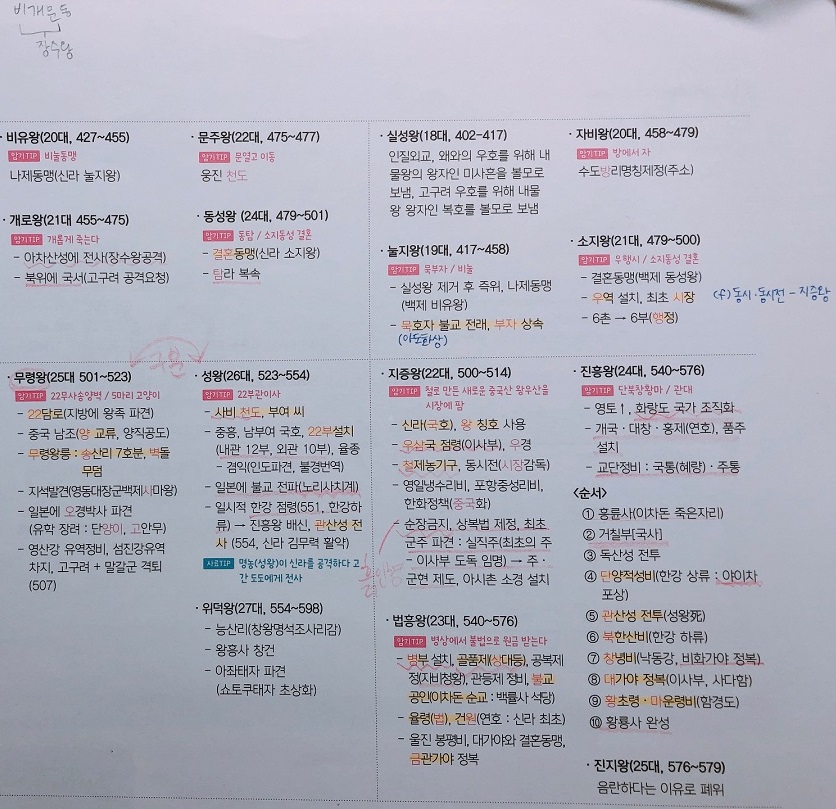 비개문동
장수왕
· 비유왕(20대, 427~455)
암기TIP 비눌동맹
나제동맹(신라 눌지왕)
· 개로왕(21대 455~475)
암기TIP 개롭게 죽는다
- 아차산성에 전사(장수왕공격)
- 북위에 국서(고구려 공격요청)
· 문주왕(22대, 475~477)
암기TIP 문열고 이동
웅진 천도
· 동성왕 (24대, 479~501)
암기TIP 동탐 / 소지동성 결혼
- 결혼동맹(신라 소지왕)
- 탐라 복속
· 실성왕(18대, 402-417)
인질외교, 왜와의 우호를 위해 내
물왕의 왕자인 미사흔을 볼모로
보냄, 고구려 우호를 위해 내물
왕 왕자인 복호를 볼모로 보냄
· 눌지왕(19대, 417~458)
암기TIP 묵부자 / 비눌
- 실성왕 제거 후 즉위, 나제동맹
(백제 비유왕)
- 묵호자 불교 전래, 부자 상속
(아도화상)
· 자비왕(20대, 458~479)
암기TIP 방에서 자
수도방리명칭제정(주소)
· 소지왕(21대, 479~500)
암기TIP 우행시 / 소지동성 결혼
- 결혼동맹(백제 동성왕)
- 우역 설치, 최초 시장
(cf) 동시·동시전 - 지증왕
- 6촌 → 6부(행정)
· 무령왕(25대 501~523)
암기TIP 22무사송양벽 / 5마리 고양이
- 22담로(지방에 왕족 파견)
- 중국 남조(양 교류, 양직공도)
- 무령왕릉 : 송산리 7호분, 벽돌
무덤
- 지석발견(영동대장군백제사마왕)
- 일본에 오경박사 파견
(유학 장려 : 단양이, 고안무)
- 영산강 유역정비, 섬진강유역
차지, 고구려 + 말갈군 격퇴
(507)
· 성왕(26대, 523~554)
암기TIP 22부관이사
- 사비 천도, 부여 씨
- 중흥, 남부여 국호, 22부설치
(내관 12부, 외관 10부), 율종
- 겸익(인도파견, 불경번역)
- 일본에 불교 전파(노리사치계)
- 일시적 한강 점령(551, 한강하
류) → 진흥왕 배신, 관산성 전
사 (554, 신라 김무력 활약)
사료TIP 명농(성왕)이 신라를 공격하다 고
간 도도에게 전사
· 위덕왕(27대, 554~598)
- 능산리(창왕명석조사리감)
- 왕흥사 창건
- 아좌태자 파견
(쇼토쿠태자 초상화)
· 지증왕(22대, 500~514)
암기TIP 철로 만든 새로운 중국산 왕우산을
시장에 팜
- 신라(국호), 왕 칭호 사용
- 우산국 점령(이사부), 우경
- 철제농기구, 동시전(시장감독)
- 영일냉수리비, 포항중성리비,
한화정책(중국화)
- 순장금지, 상복법 제정, 최초
군주 파견 : 실직주(최초의 주
- 이사부 도독 임명) → 주·
군현 제도, 아시촌 소경 설치
· 법흥왕(23대, 540~576)
암기TIP 병상에서 불법으로 원금 받는다
- 병부 설치, 골품제(상대등), 공복제
정(자비청황), 관등제 정비, 불교
공인(이차돈 순교 : 백률사 석당)
- 율령(법), 건원(연호 : 신라 최초)
- 울진 봉평비, 대가야와 결혼동맹,
금관가야 정복
· 진흥왕(24대, 540~576)
암기TIP 단북창황마 / 관대
- 영토↑, 화랑도 국가 조직화
- 개국·대창·홍제(연호), 품주
설치
- 교단정비 : 국통(혜량)·주통
<순서>
① 흥륜사(이차돈 죽은자리)
② 거칠부[국사]
③ 독산성 전투
④ 단양적성비(한강 상류 : 야이차
포상)
⑤ 관산성 전투(성왕死)
⑥ 북한산비(한강 하류)
⑦ 창녕비(낙동강, 비화가야 정복)
⑧ 대가야 정복(이사부, 사다함)
⑨ 황초령·마운령비(함경도)
⑩ 황룡사 완성
· 진지왕(25대, 576~579)
음란하다는 이유로 폐위